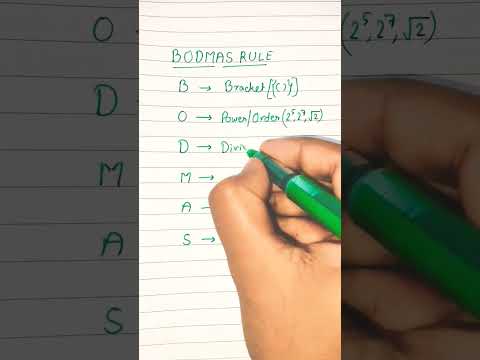 BODMAS RULE
B → Bracket [{()}]
O → Power/Order (2⁵, 2⁷, √2)
D → Divi
M →
A →
S →
O → (2⁵, 2⁷, √2)
D →
M
A
S